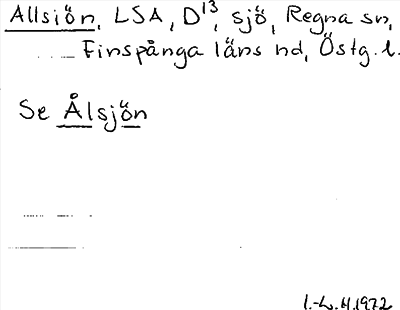 Allsjön, LSA, D13, sjö, Regna sn,
Finspånga läns hd, Östg.l.
Se Ålsjön
I.-L.H.1972